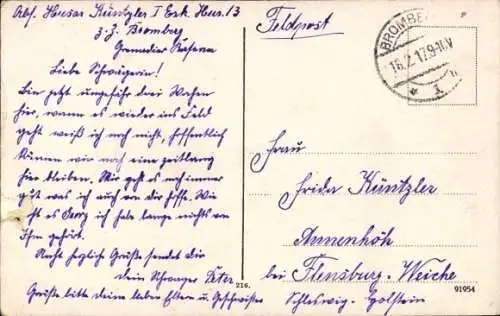 Abs. Husar Küntzler I Esk. Hus. 13
z. Z. Bromberg
Grenadier Kaserne
Liebe Schwägerin!
Bin jetzt ungefähr drei Wochen
hier, wann es wieder ins Feld
geht weiß ich noch nicht, hoffentlich
können wir noch eine zeitlang
hier bleiben. Mir geht es noch immer
gut was ich auch von dir hoffe. Wie
geht es ich habe lange nichts von
ihm gehört.
Recht herzliche Grüße sendet dir
dein Schwager Peter
Grüße bitte deine lieben Eltern u. Geschwister
Feldpost
BROMBERG
16.2.17.9-10.V
* 1
Frau
Frida Küntzler
Annenhöh
bei Flensburg-Weiche
Schleswig-Holstein
216.
91954